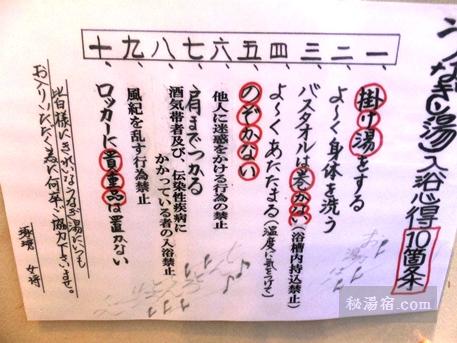 うなぎ湯入浴心得10箇条
一、掛け湯をする
二、よ〜く身体を洗う
三、バスタオルは巻かない(浴槽内持込禁止)
四、よ〜くあたたまる(温度に気をつけて)
五、のぞかない
六、他人に迷惑をかける行為の禁止
七、肩までつかる
八、酒気帯者及び、伝染性疾病に
かかっている者の入浴禁止
九、風紀を乱す行為禁止
十、ロッカーに貴重品は置かない
皆様にきれいなうなぎ湯にいつも
お入りいただく為に何卒ご協力下さいませ。
湯環 女将
秘湯宿.com